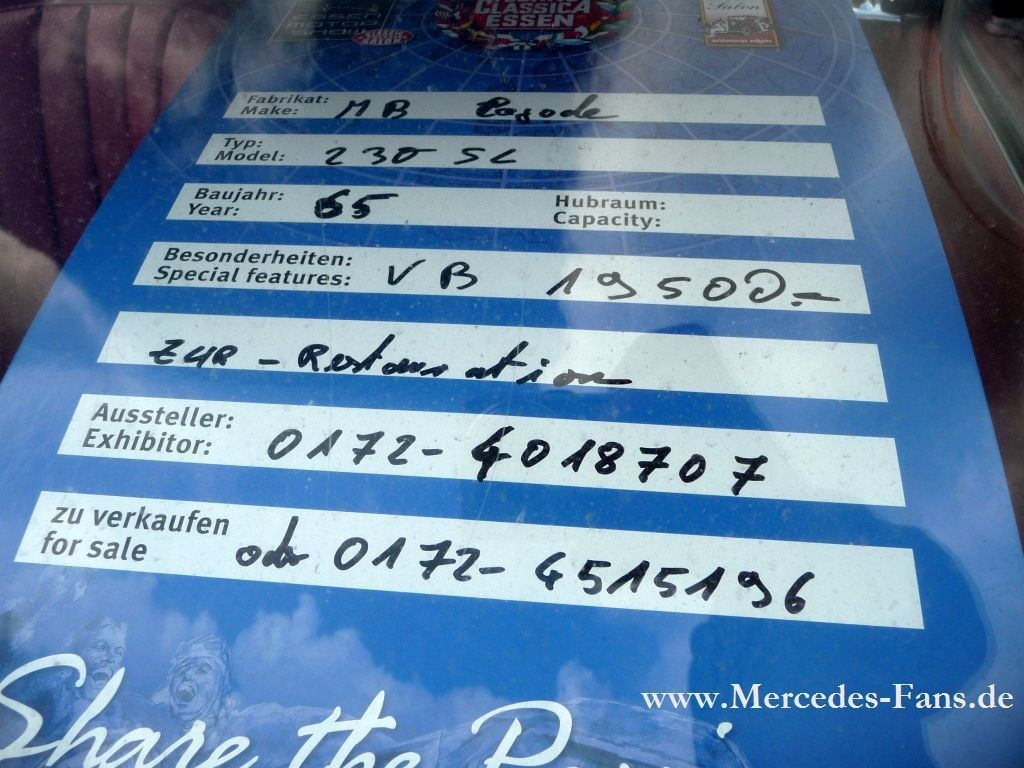 CLASSIC
MOTOR
SHOW
CLASSIC
SALON
CLASSICA
ESSEN
Salon
Fabrikat:
Make: MB Pagode
Typ:
Model: 230 SL
Baujahr:
Year: 65
Hubraum:
Capacity:
Besonderheiten:
Special features: VB 19500.-
zur - Restauration
Aussteller:
Exhibitor: 0172-4018707
zu verkaufen
for sale oder 0172-4515196
Share the
www.Mercedes-Fans.de